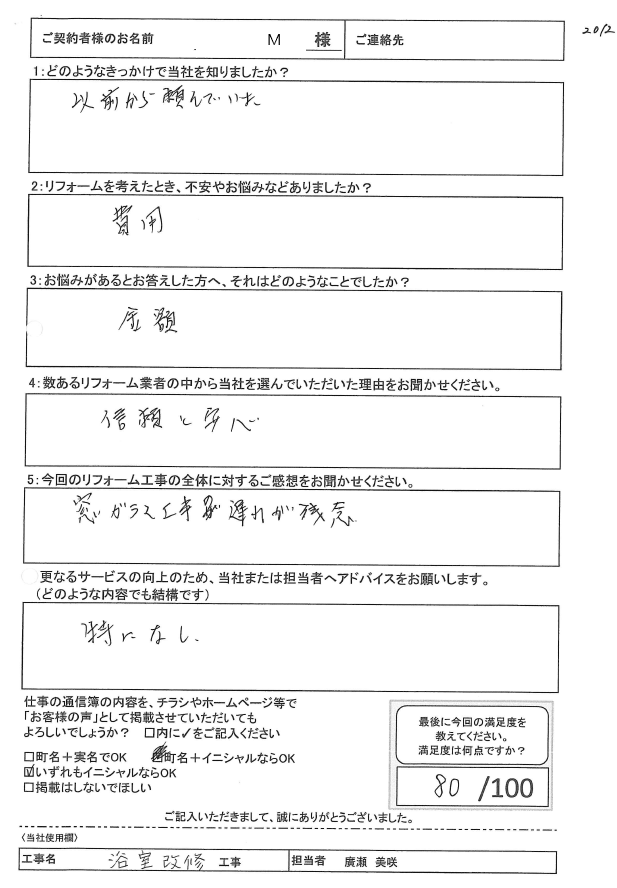 2012
ご契約者様のお名前 M 様 ご連絡先
1:どのようなきっかけで当社を知りましたか？
以前から頼んでいた
2:リフォームを考えたとき、不安やお悩みなどありましたか？
費用
3:お悩みがあるとお答えした方へ、それはどのようなことでしたか？
金額
4:数あるリフォーム業者の中から当社を選んでいただいた理由をお聞かせください。
信頼と安心
5:今回のリフォーム工事の全体に対するご感想をお聞かせください。
窓ガラス工事 遅れが残念
更なるサービスの向上のため、当社または担当者へアドバイスをお願いします。
（どのような内容でも結構です）
特になし.
仕事の通信簿の内容を、チラシやホームページ等で
「お客様の声」として掲載させていただいても
よろしいでしょうか？ □内に✓をご記入ください
□町名＋実名でOK □町名＋イニシャルならOK
☑いずれもイニシャルならOK
□掲載はしないでほしい
最後に今回の満足度を
教えてください。
満足度は何点ですか？
80 /100
ご記入いただきまして、誠にありがとうございました。
〈当社使用欄〉
工事名 浴室改修 工事 担当者 廣瀬 美咲